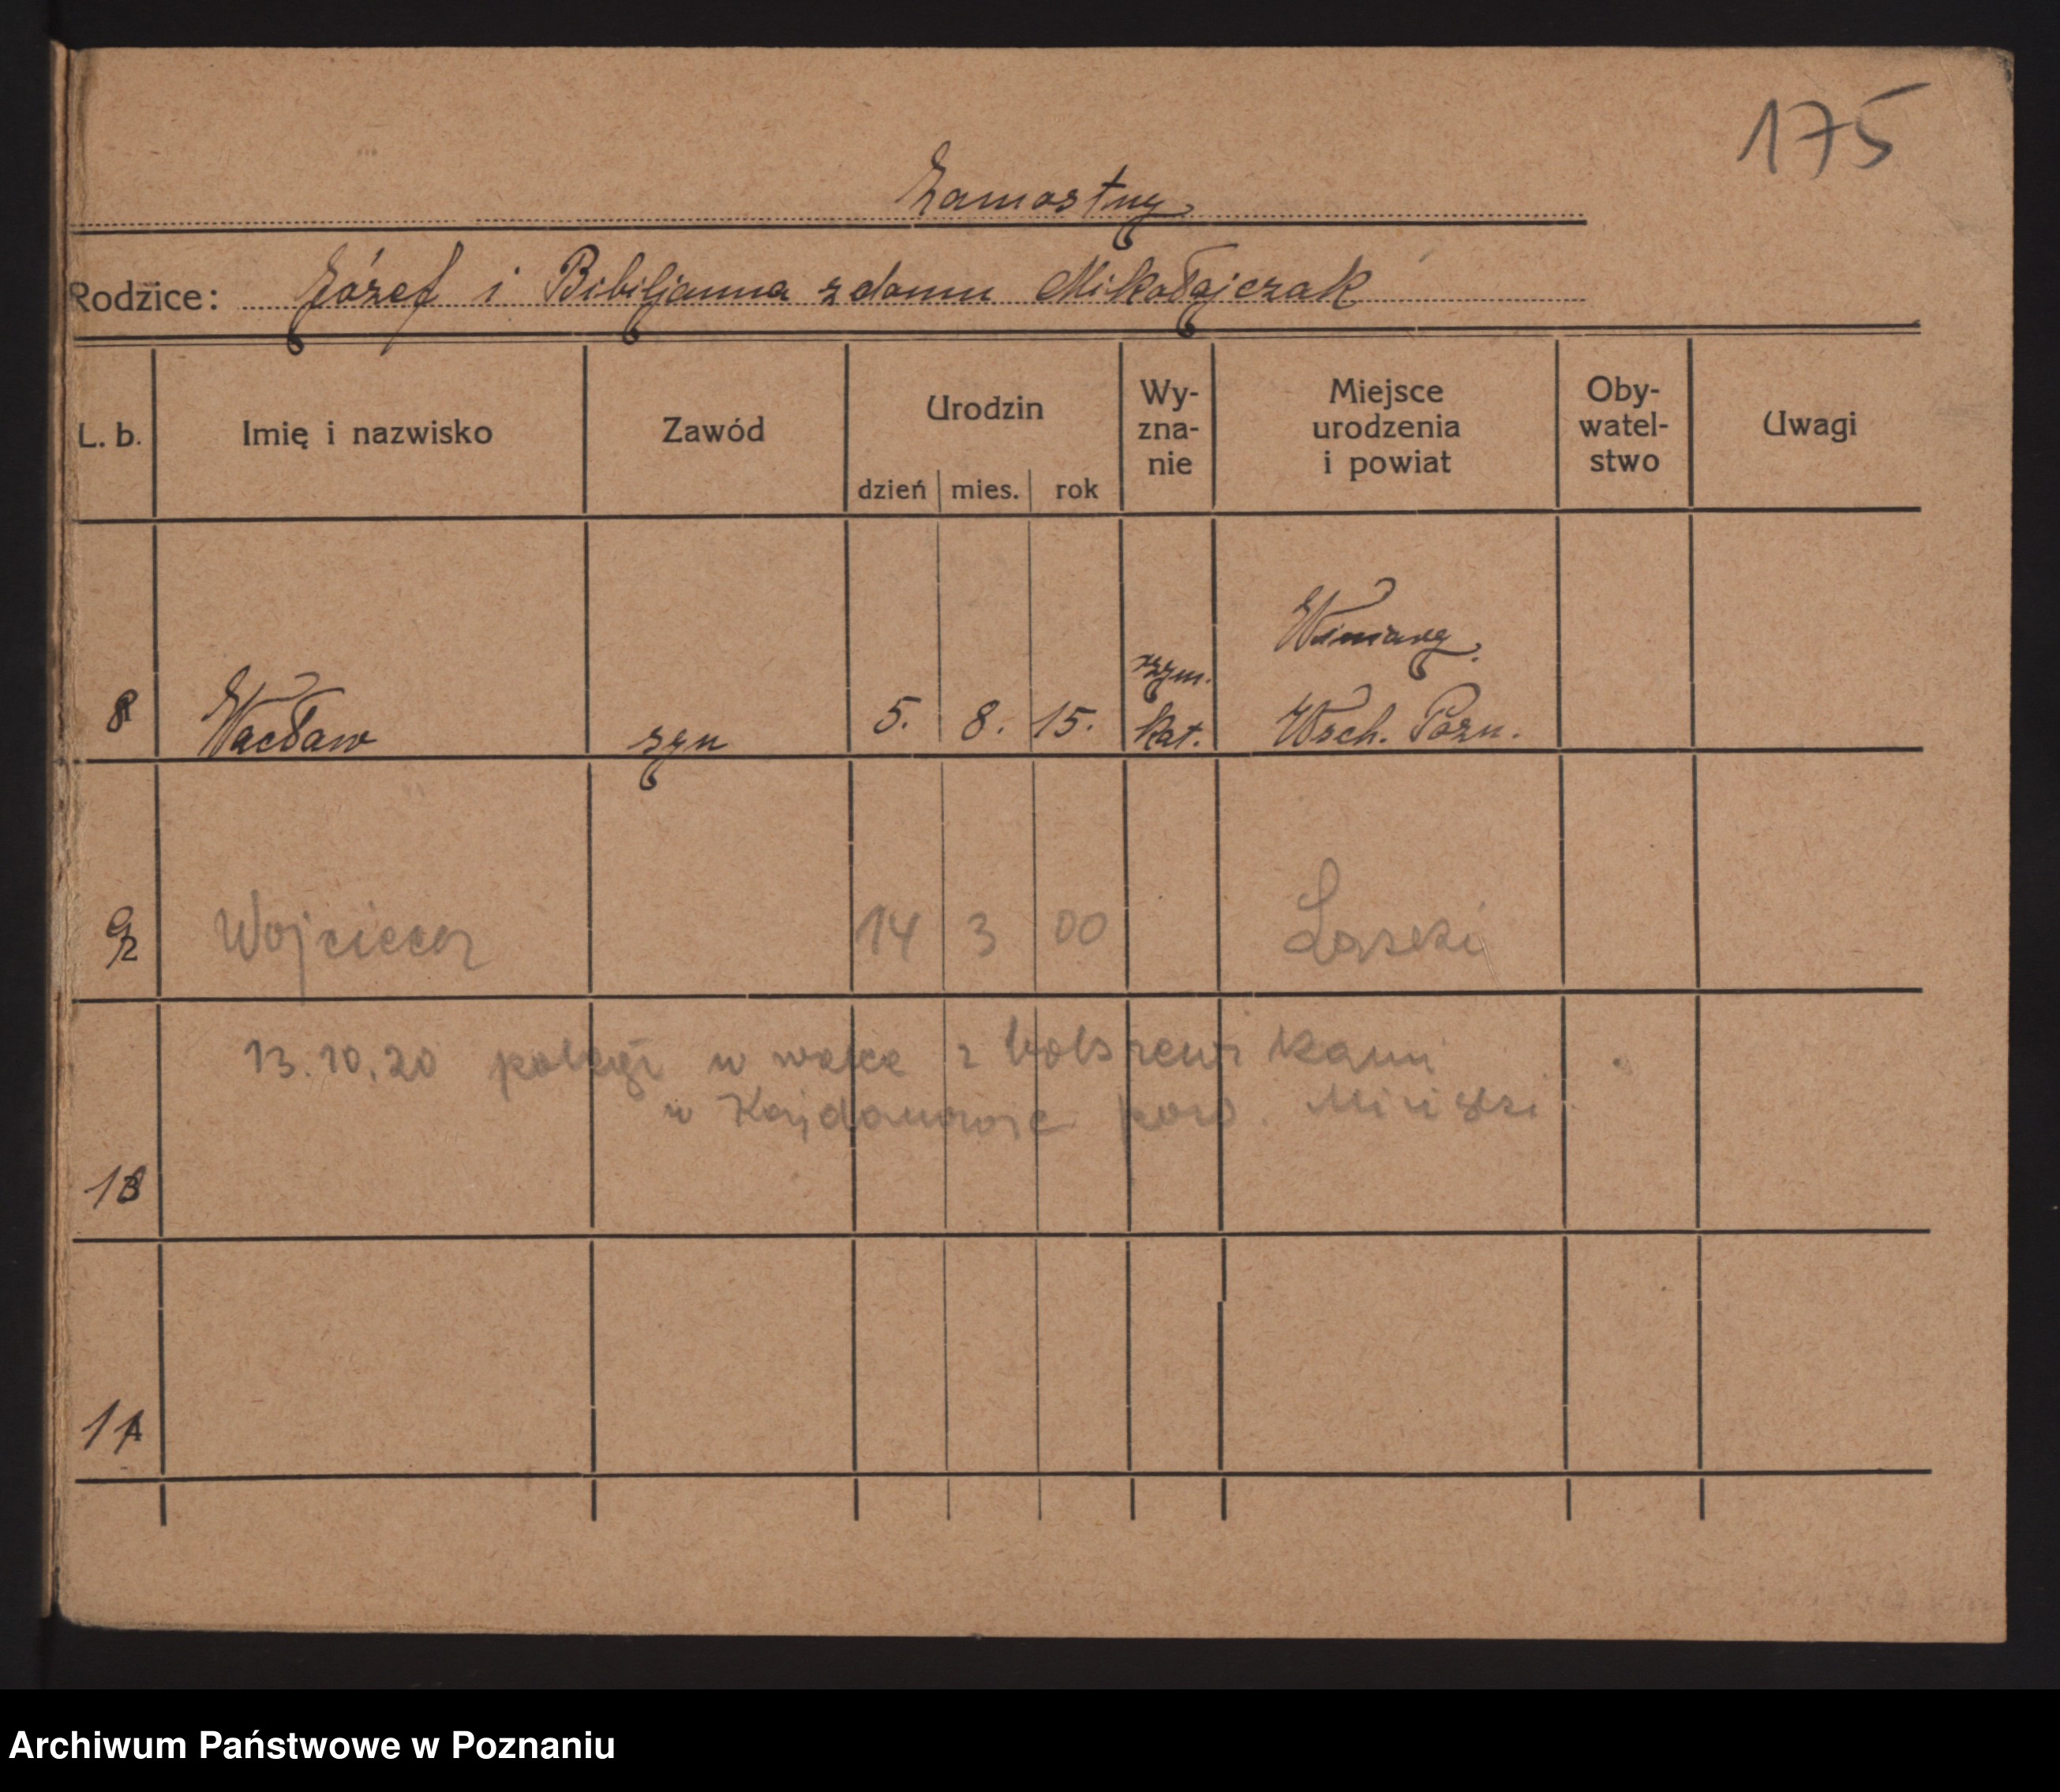 175
Zamostny
Rodzice: Józef i Bibiljanna z domu Mikołajczak
L. b.
Imię i nazwisko
Zawód
Urodzin
dzień mies. rok
Wy-
zna-
nie
Miejsce
urodzenia
i powiat
Oby-
watel-
stwo
Uwagi
8 Wacław syn 5. 8. 15. rzym.
kat.
Winiary.
Wsch. Pozn.
9 Wojciech 14 3 00 Laski
13.10.20 poległ w walce z bolszewikami
w Kojdanowie pow. Miński
Archiwum Państwowe w Poznaniu